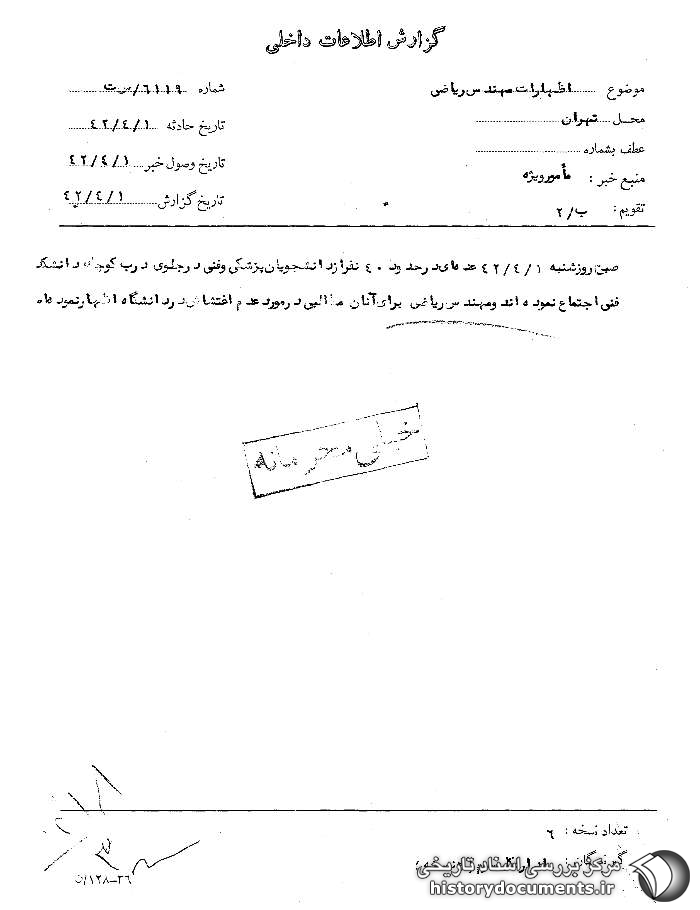 گزارش اطلاعات داخلی
موضوع اظهارات مهندس ریاضی
محل تهران
عطف بشماره
منبع خبر : مأمور ویژه
تقویم : ب/۲
شماره ۶۱۱۹/س ت
تاریخ حادثه ۴۲/۴/۱
تاریخ وصول خبر ۴۲/۴/۱
تاریخ گزارش ۴۲/۴/۱
صبح روز شنبه ۴۲/۴/۱ عده‌ای در حدود ۴۰ نفر از دانشجویان پزشکی و فنی در جلوی درب کوچک دانشکده
فنی اجتماع نموده اند و مهندس ریاضی برای آنان مطالبی در مورد عدم اغتشاش در دانشگاه اظهار نموده است
خیلی محرمانه
تعداد نسخه : ۶
مرکز بررسی اسناد تاریخی
historydocuments.ir